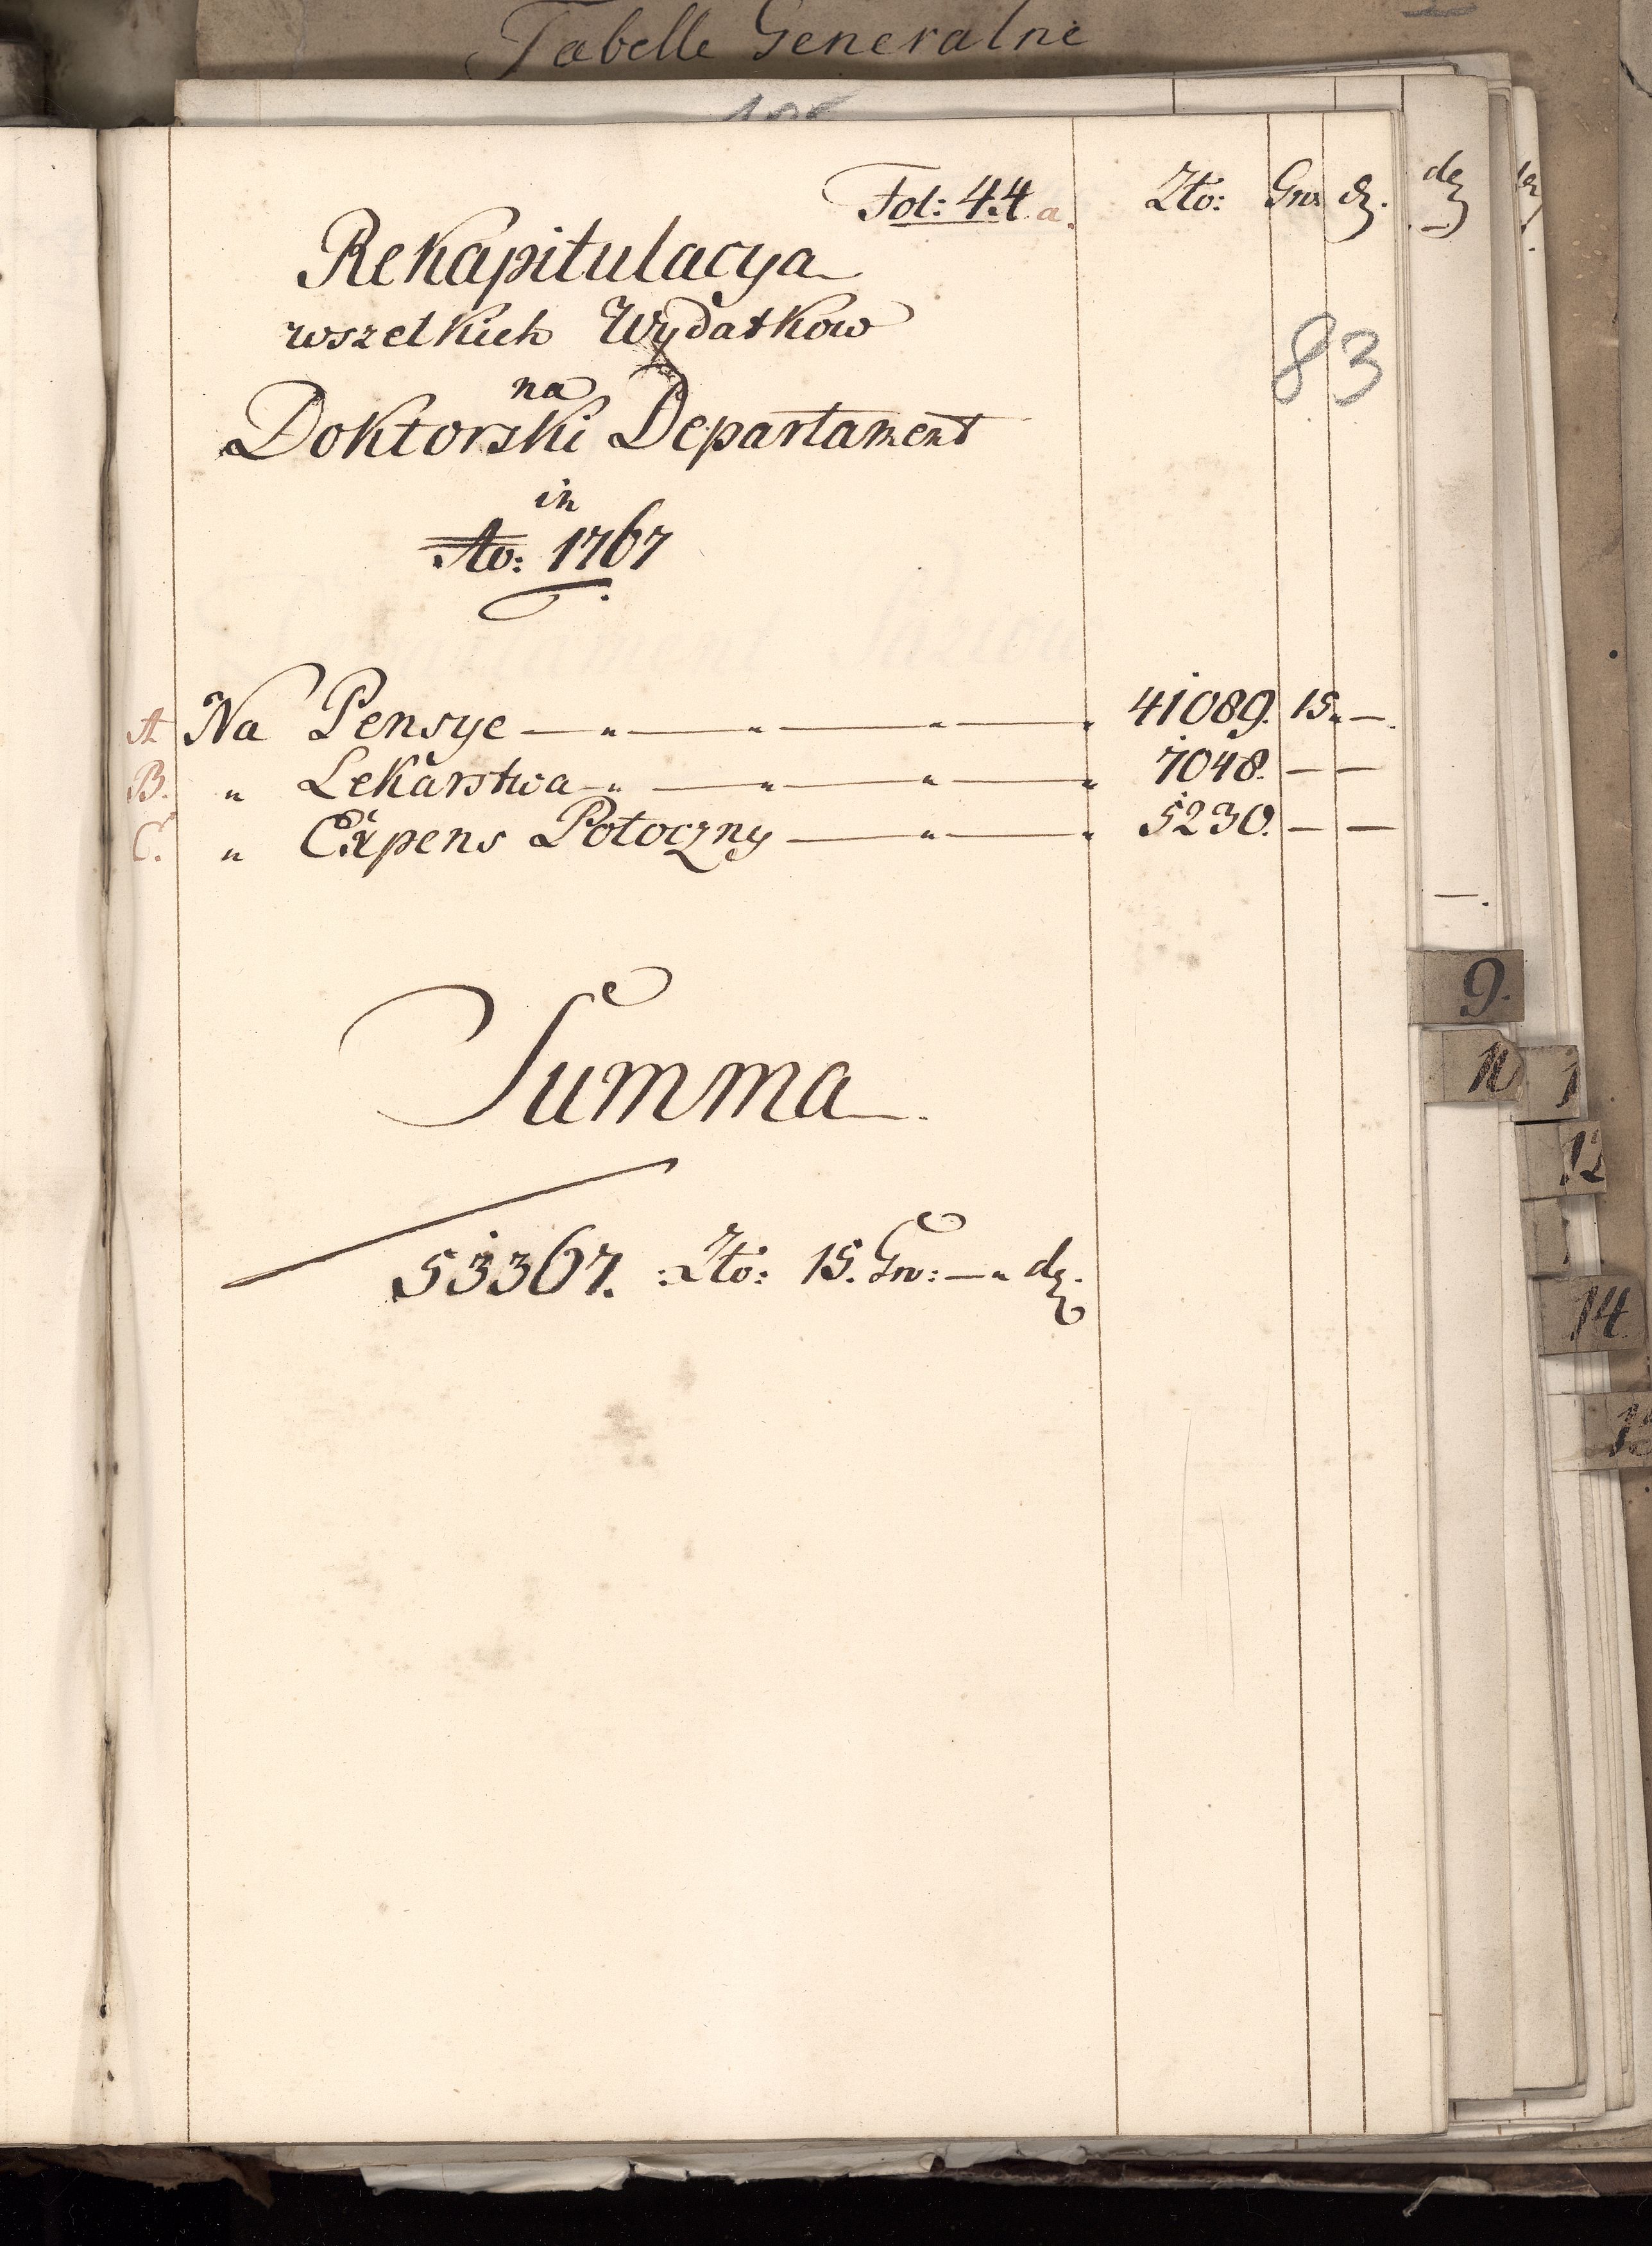 Tabelle Generalne
Fol: 44 a.
Zło: Gro: dz.
83
Rekapitulacya
wszelkich Wydatkow
na
Doktorski Departament
in
Ao: 1767
A Na Pensye — „ — „ — „ — „ 41089. 15. —.
B. „ Lekarstwa — „ — „ — „ — „ 7048. — —
C. „ Expens Potoczny — „ — „ 5230. — —
Summa
53367. Zło: 15. Gro: — „ dz.
9.
10
12
14